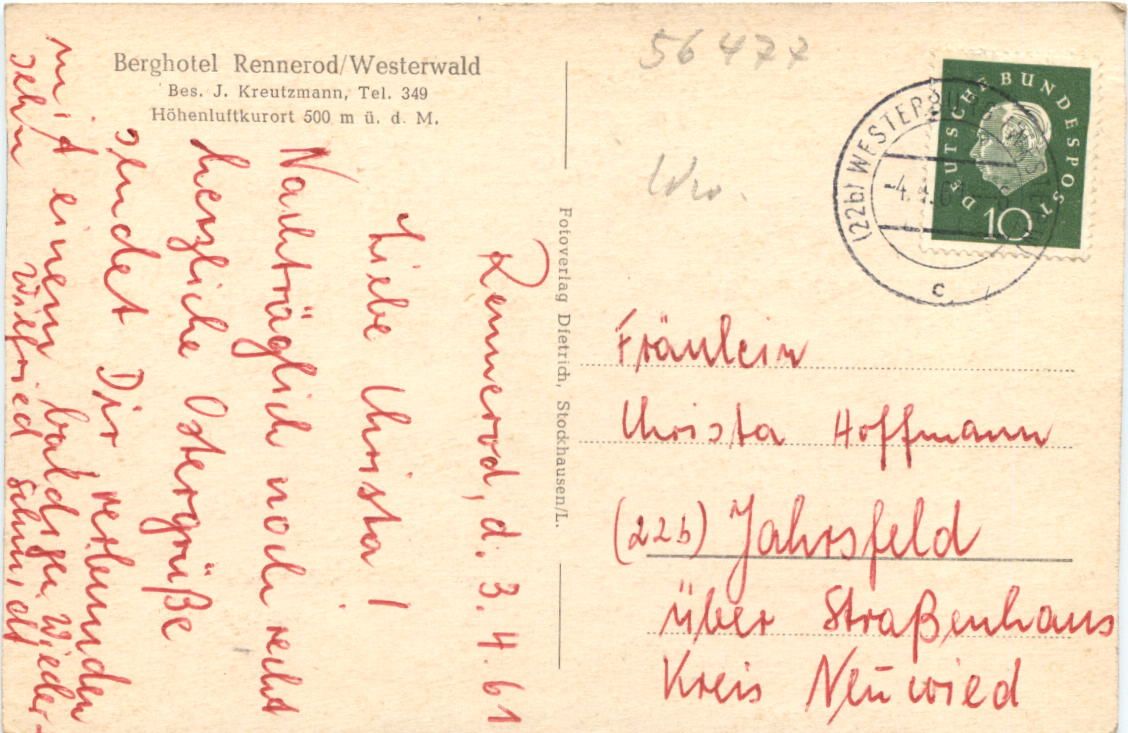 Berghotel Rennerod/Westerwald
Bes. J. Kreutzmann, Tel. 349
Höhenluftkurort 500 m ü. d. M.
Rennerod, d. 3. 4. 61
Liebe Christa!
Nachträglich noch recht
herzliche Ostergrüße
sendet Dir verbunden
mit einem baldigen Wieder-
sehn Wilfried Schmidt
Fotoverlag Dietrich, Stockhausen/L.
56477
DEUTSCHE BUNDESPOST
10
(22b) WESTERBURG
-4.4.61
c
Fräulein
Christa Hoffmann
(22b) Jahrsfeld
über Straßenhaus
Kreis Neuwied